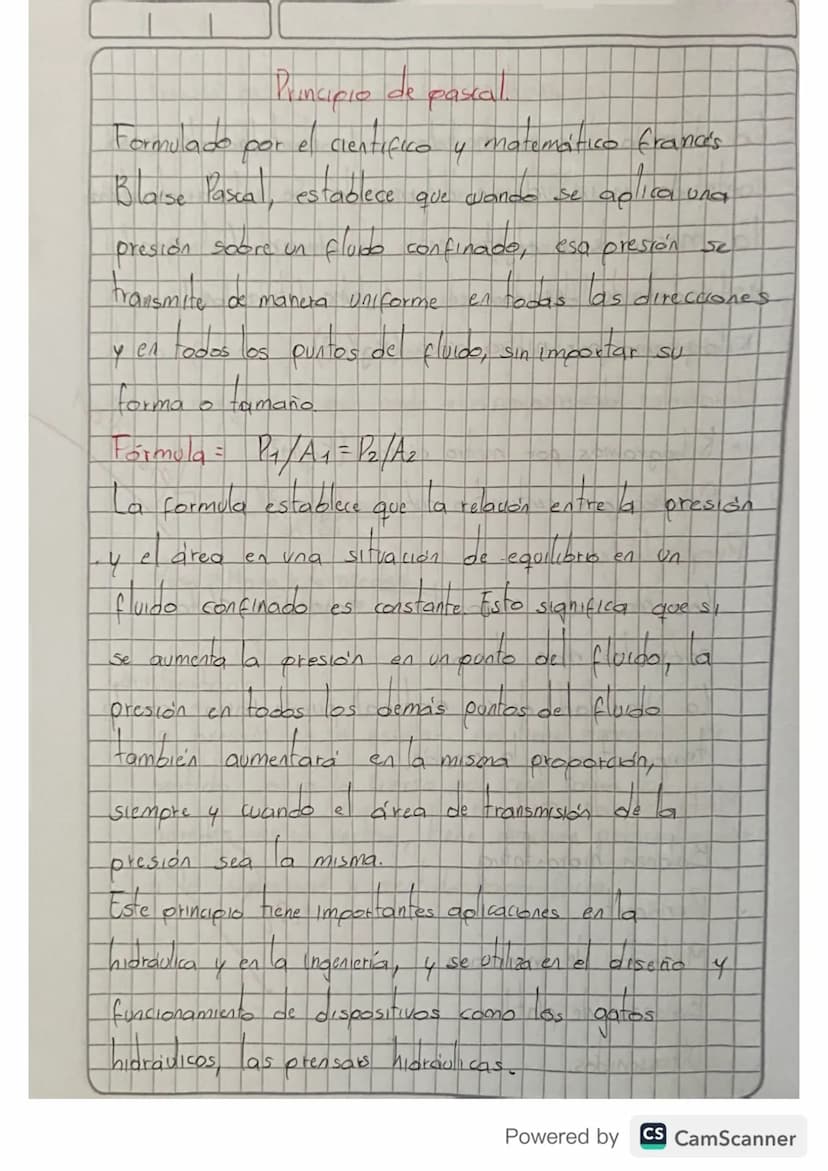 Principio de pascal.
Formulado por el científico y matemático francés
Blaise Pascal, establece que cuando se aplica una
presión sobre un fluido confinado, esa presión se
transmite de manera uniforme en todas las direcciones
y en todos los puntos del fluido, sin importar su
forma o tamaño.
Fórmula = P1/A1 = P2/A2
La formula establece que la relación entre la presión
y el área en una situación de equilibrio en un
fluido confinado es constante. Esto significa que si
se aumenta la presión en un punto del fluido, la
presión en todos los demás puntos del fluido
también aumentará en la misma proporción,
siempre y cuando el área de transmisión de la
presión sea la misma.
Este principio tiene importantes aplicaciones en la
hidráulica y en la ingeniería, y se utiliza en el diseño y
funcionamiento de dispositivos como los gatos
hidráulicos, las prensas hidráulicas.
Powered by CS CamScanner